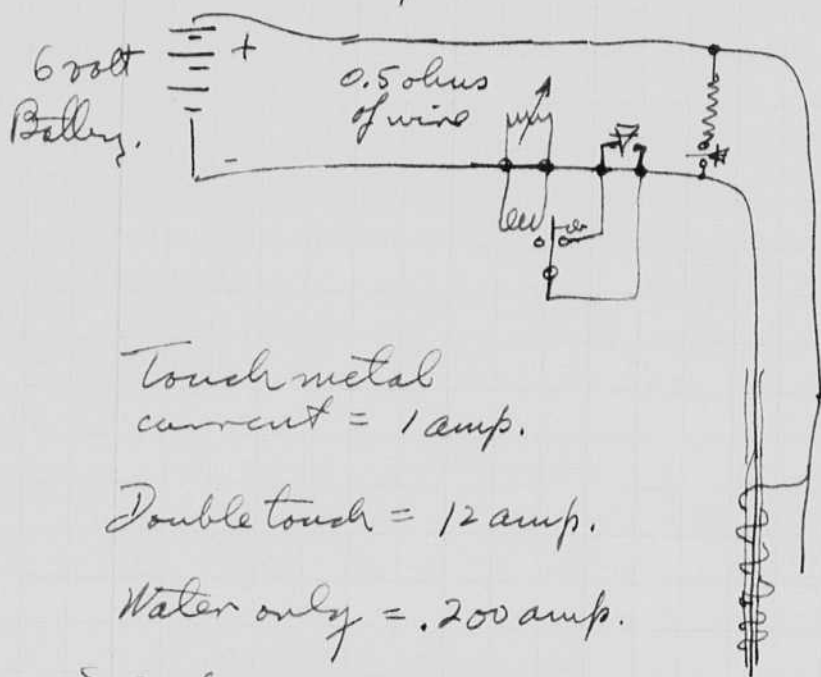 6 volt
Battery.
+
-
0.5 ohms
of wire
Touch metal
current = 1 amp.
Double touch = 12 amp.
Water only = .200 amp.